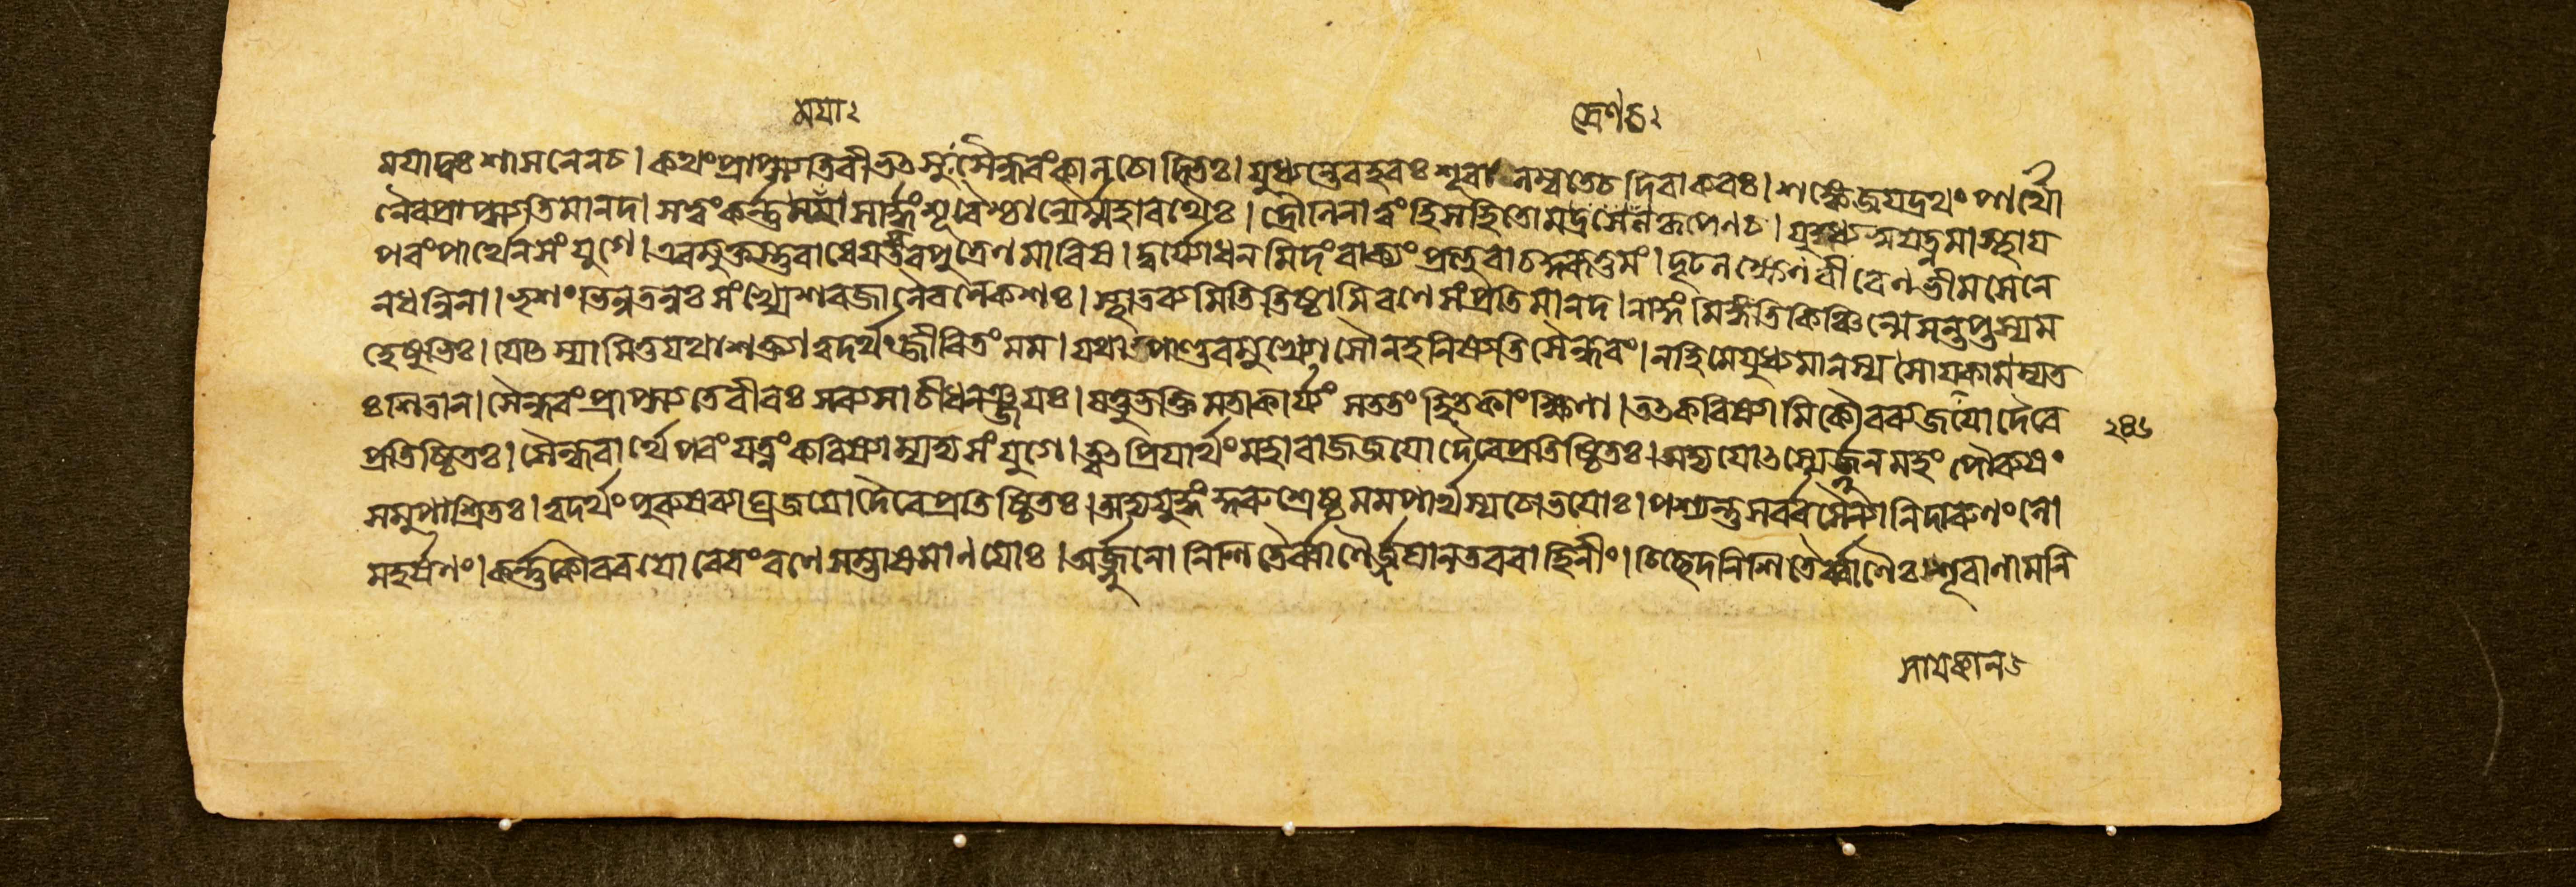 ময়া২ দ্রোণচ২
ময়াদুঃশাসনেনচ। কথংপ্রাপ্স্যতিবীভৎসুঃসৈন্ধবংকালচোদিতঃ। যুধ্যন্তেবহবঃশূরা লম্বতেচদিবাকরঃ। শঙ্কেজয়দ্রথংপার্থো
নৈবপ্রাপ্স্যতিমানদ। সত্বংকর্ণময়াসার্দ্ধংশূরৈশ্চান্যৈর্ম্মহারথৈঃ। দ্রৌণিনাত্বংহিসহিতোমদ্রেশেনকৃপেণচ। যুধ্যস্বযত্নমাস্থায়
পরংপার্থেনসংযুগে। এবমুক্তস্তুরাধেয়স্তবপুত্রেণমারিষ। দুর্য্যোধনমিদংবাক্যংপ্রত্যুবাচকুরূত্তমং। দৃঢলক্ষ্যেণবীরেণভীমসেনে
নধন্বিনা। ভৃশংভিন্নতনুঃসংখ্যেশরজালৈরনেকশঃ। স্থাতব্যমিতিতিষ্ঠামিরণেসংপ্রতিমানদ। নাঙ্গমিঙ্গতিকিঞ্চিন্মেসন্তপ্তস্যম
হেষুভিঃ। যোৎস্যামিতুযথাশক্ত্যাত্বদর্থংজীবিতংমম। যথাপাণ্ডবমুখ্যোসৌনহনিষ্যতিসৈন্ধবং। নহিমেযুধ্যমানস্যসায়কামস্যত
ঃশিতান। সৈন্ধবংপ্রাপ্স্যতেবীরঃসব্যসাচীধনঞ্জয়ঃ। যত্তুভক্তিমতাকার্য্যংসততংহিতকাংক্ষিণা। তৎকরিষ্যামিকৌরব্যজয়োদৈবে
প্রতিষ্ঠিতঃ। সৈন্ধবার্থেপরংযত্নংকরিষ্যাম্যদ্যসংযুগে। ত্বৎপ্রিয়ার্থংমহারাজজয়োদৈবেপ্রতিষ্ঠিতঃ। অদ্যযোৎস্যের্জ্জুনমহংপৌরুষং ২৪৬
সমুপাশ্রিতঃ। ত্বদর্থংপুরুষব্যাঘ্রজয়োদৈবেপ্রতিষ্ঠিতঃ। অদ্যযুদ্ধংকুরুশ্রেষ্ঠমমপার্থস্যচোভয়োঃ। পশ্যন্তুসর্ব্বসৈন্যানিদারুণংলো
মহর্ষণং। কর্ণকৌরবয়োরেবংরণেসম্ভাষমাণয়োঃ। অর্জ্জুনোনিশিতৈর্ব্বাণৈর্জ্জঘানতববাহিনীং। চিচ্ছেদনিশিতৈর্ব্বাণৈঃশূরাণামনি
সায়কান৬